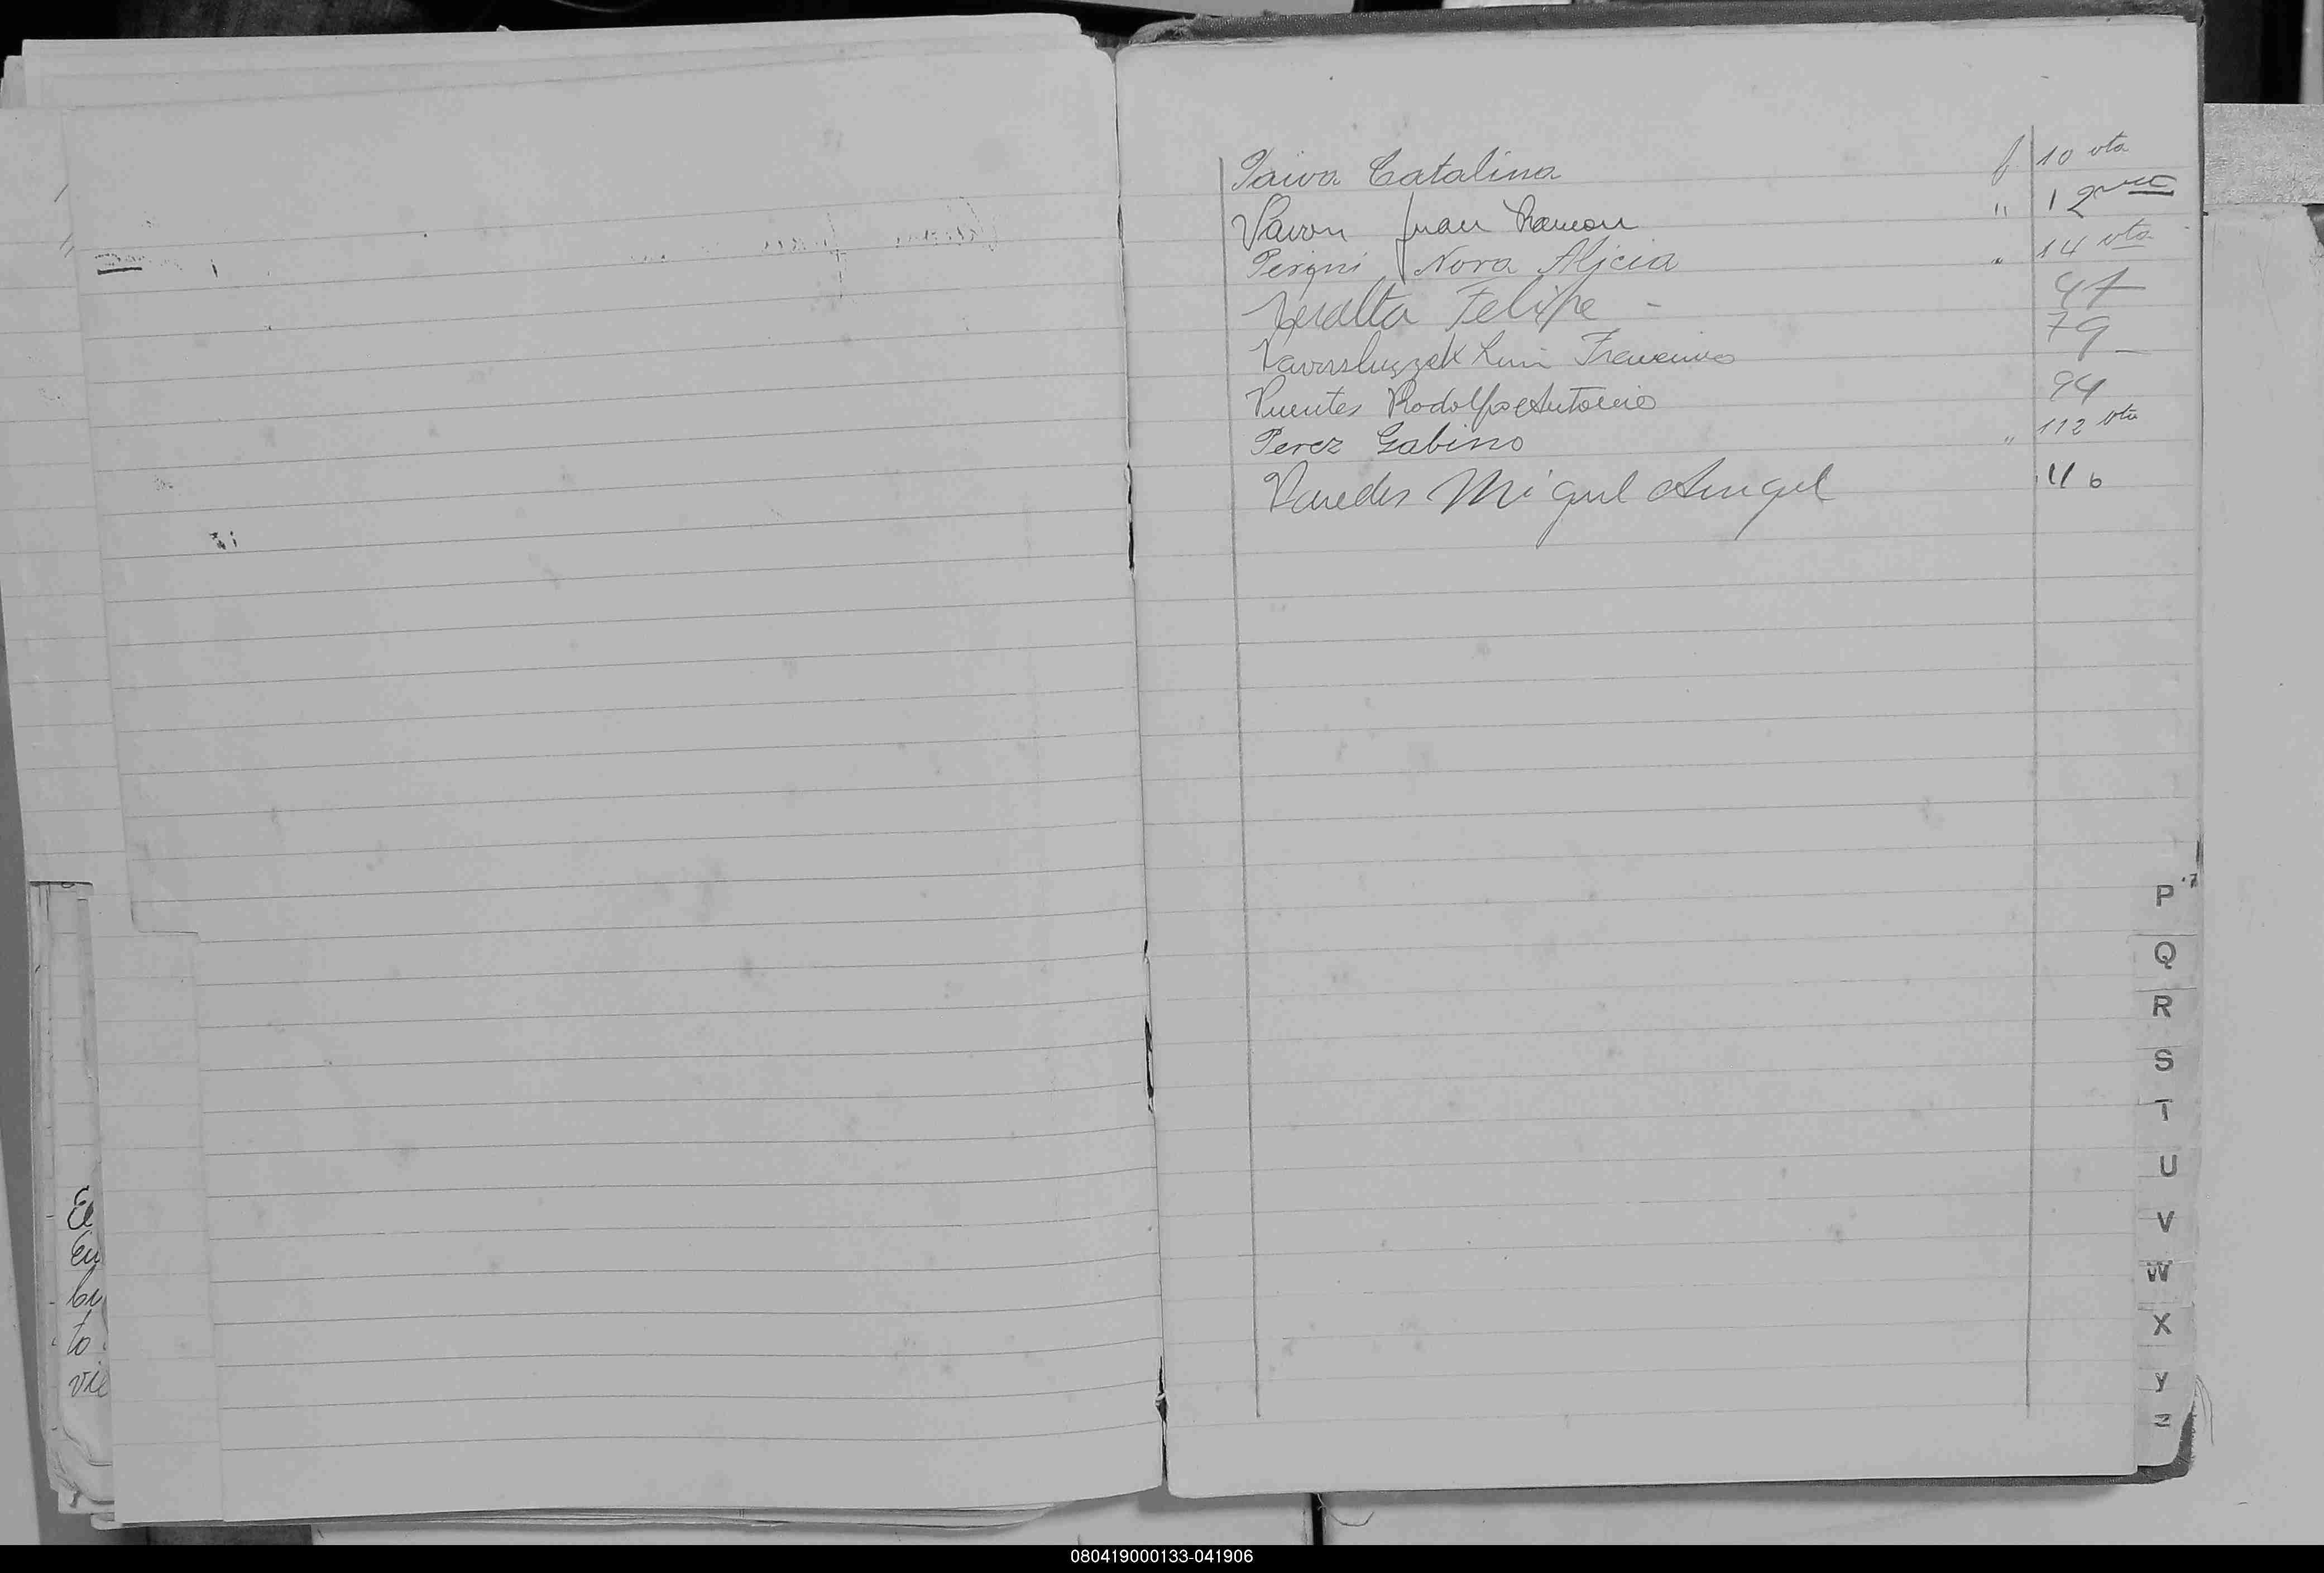 Paiva Catalina f 10 vta
Pavon Juan Ramon " 12 vta
Perigni Nora Alicia " 14 vta
Peralta Felipe - 47
Luis Francisco 79
Puentes Rodolfo Antonio 94
Perez Gabino " 112 vta
Paredes Miguel Angel 116
P
Q
R
S
T
U
V
W
X
Y
Z
El
En
to
vie
080419000133-041906